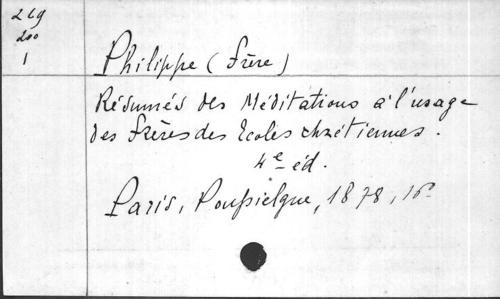 269
200
1
Philippe (Frère)
Résumés des Méditations à l'usage
des Frères des Ecoles chrétiennes.
4e éd.
Paris, Poussielgue, 1878, 16°